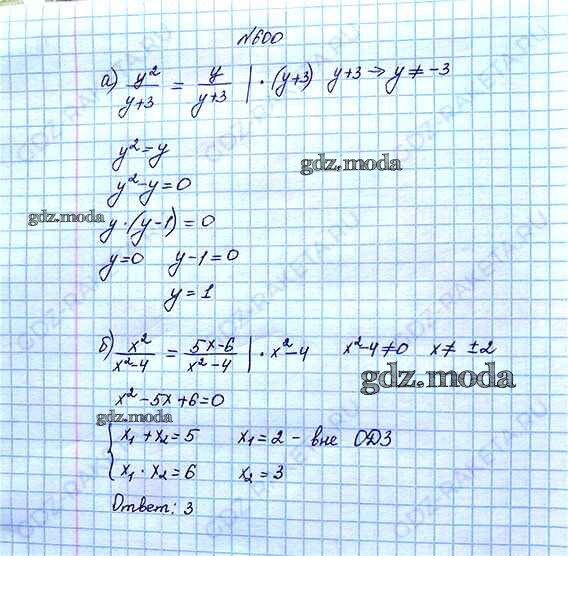 №600
а) y²/(y+3) = y/(y+3) | · (y+3) y+3 → y ≠ -3
y² = y
gdz.moda
y² - y = 0
gdz.moda
y · (y - 1) = 0
y = 0 y - 1 = 0
y = 1
б) x²/(x²-4) = (5x-6)/(x²-4) | · x²-4 x²-4≠0 x ≠ ±2
gdz.moda
x² - 5x + 6 = 0
gdz.moda
{ x₁ + x₂ = 5 x₁ = 2 - вне ОДЗ
x₁ · x₂ = 6 x₂ = 3
Ответ: 3
GDZ-RAKETA.RU